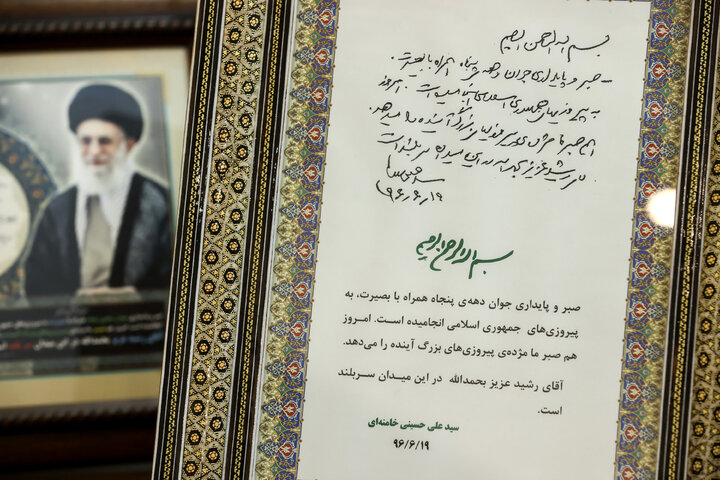 بسم الله الرحمن الرحیم
صبر و پایداری جوان دهه‌ی پنجاه همراه با بصیرت
به پیروزی‌های جمهوری اسلامی انجامیده است. امروز
هم صبر ما مژده‌ی پیروزی‌های بزرگ آینده را میدهد.
آقای رشید عزیز بحمدالله در این میدان سربلند است
سید علی خامنه‌ای
۹۶/۶/۱۹
بسم الله الرحمن الرحیم
صبر و پایداری جوان دهه‌ی پنجاه همراه با بصیرت، به
پیروزی‌های جمهوری اسلامی انجامیده است. امروز
هم صبر ما مژده‌ی پیروزی‌های بزرگ آینده را می‌دهد.
آقای رشید عزیز بحمدالله در این میدان سربلند
است.
سید علی حسینی خامنه‌ای
۹۶/۶/۱۹